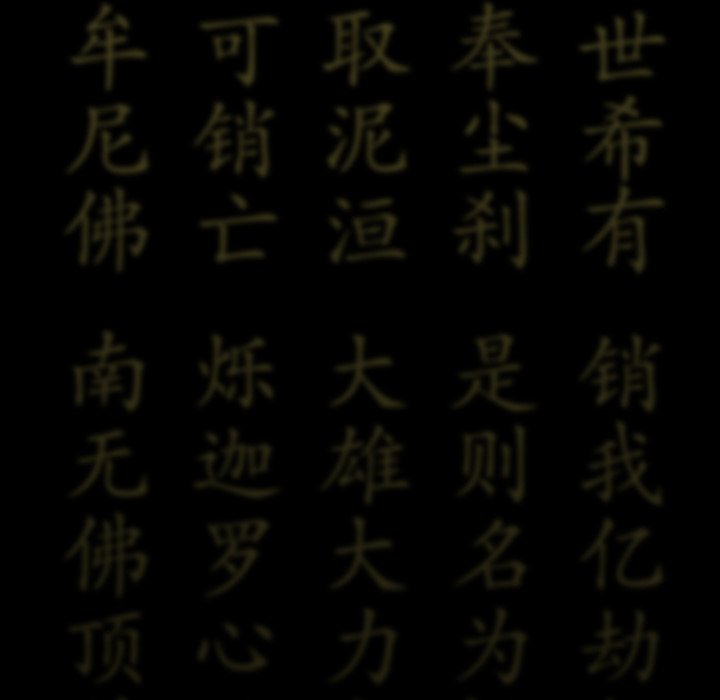 世希有 销我亿劫
奉尘刹 是则名为
取泥洹 大雄大力
可销亡 烁迦罗心
牟尼佛 南无佛顶